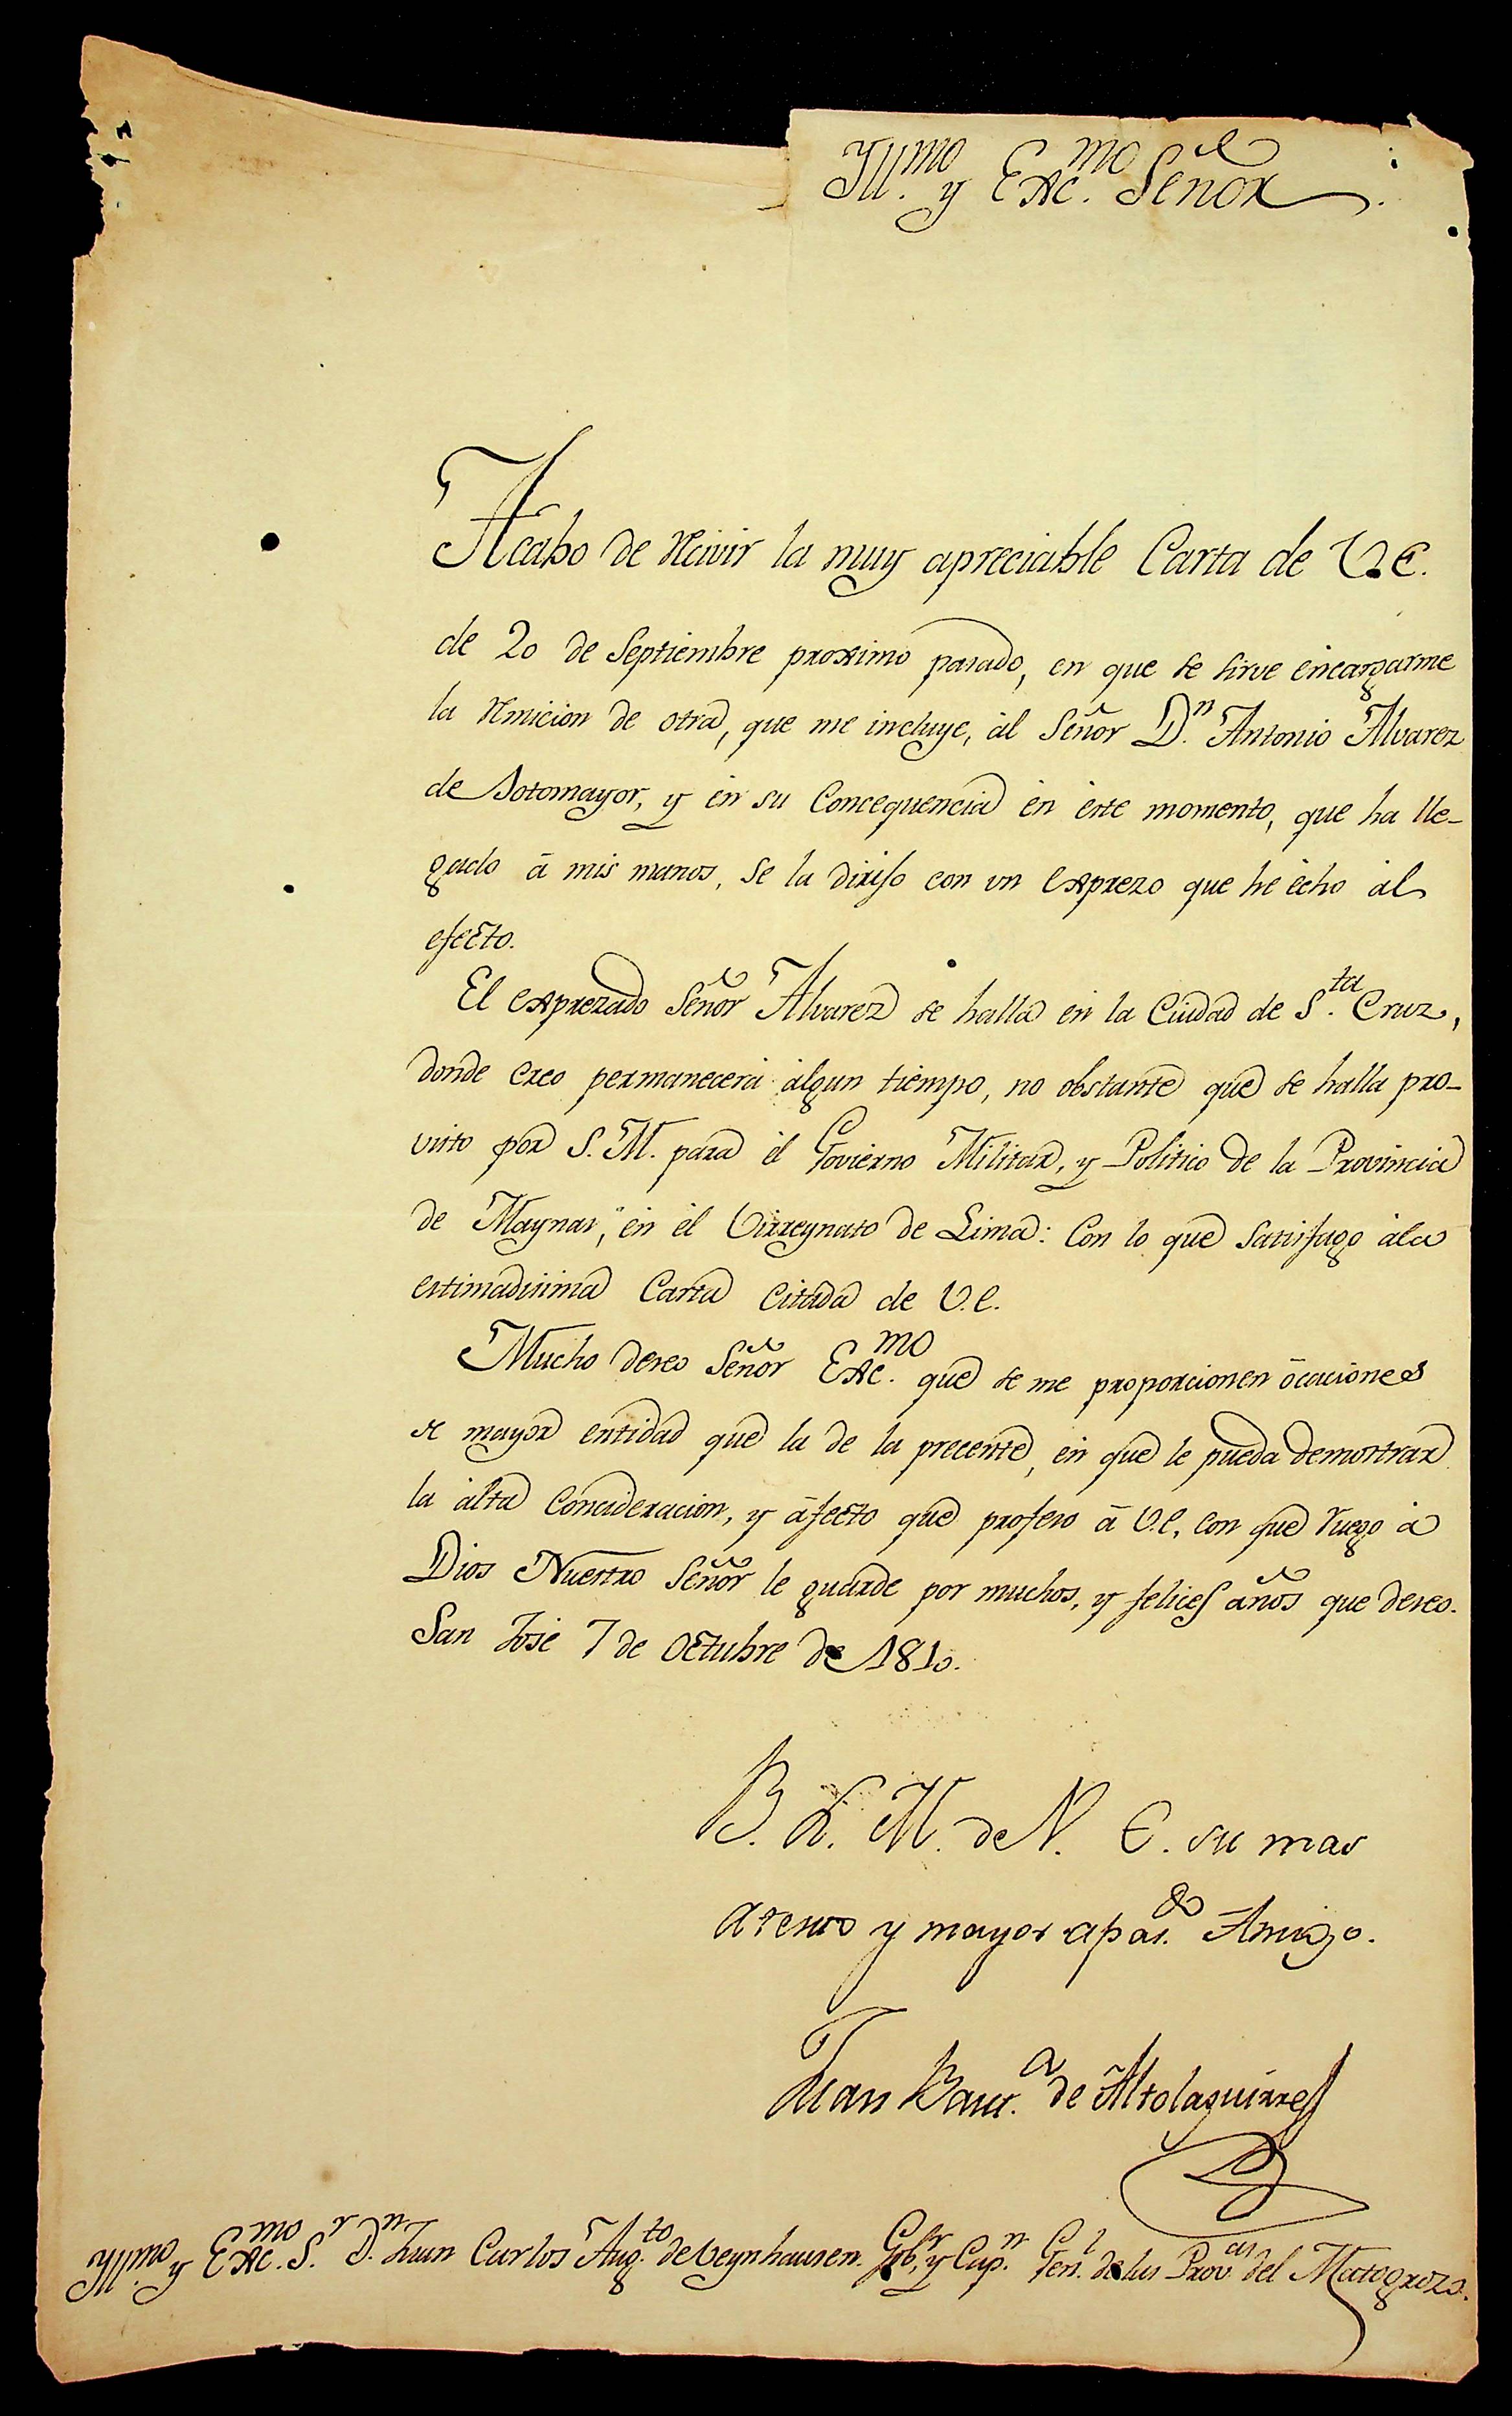 Yll.mo y Exc.mo Señor.
Acabo de recivir la muy apreciable Carta de V.E.
de 20 de Septiembre proximo pasado, en que se sirve encargarme
la remicion de otra, que me incluye, àl Señor D.n Antonio Alvarez
de Sotomayor, y èn su Concequencia èn èste momento, que ha lle-
gado â mis manos, se la dirijo con vn expreso que hè êcho àl
efecto.
El expresado Señor Alvarez se halla èn la Ciudad de S.ta Cruz,
donde creo permanecerà àlgun tiempo, no obstante que se halla pro-
visto por S. M. para èl Govierno Militar, y Politico de la Provincia
de Maynas, èn èl Virreynato de Lima: Con lo que satisfago àla
estimadisima Carta Citada de V.E.
Mucho deseo Señor Exc.mo que se me proporcionen ôcaciones
de mayor entidad que la de la precente, èn que le pueda demostrar
la àlta Concideracion, y âfecto que profeso â V.E, con que ruego à
Dios Nuestro Señor le guarde por muchos, y felices años que deseo.
San José 7 de Octubre de 1810.
B. L. M. de V. E. su mas
atento y mayor apas.do Amigo.
Juan Baut.a de Altolaguirre
Yll.mo y Exc.mo S.r D.n Juan Carlos Aug.to de Oeynhausen. Gob.r y Cap.n Gen.l de las Prov.as del Matogrozo.